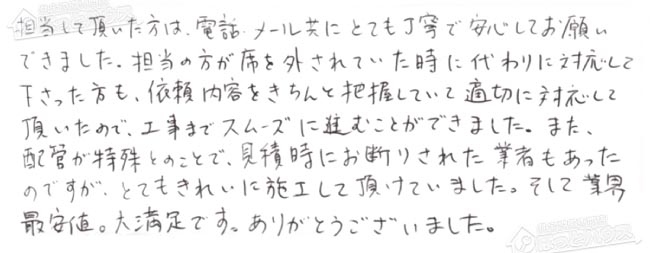 担当して頂いた方は、電話・メール共にとても丁寧で安心してお願い
できました。担当の方が席を外されていた時に代わりに対応して
下さった方も、依頼内容をきちんと把握していて適切に対応して
頂いたので、工事までスムーズに進むことができました。また、
配管が特殊とのことで、見積時にお断りされた業者もあった
のですが、とてもきれいに施工して頂けていました。そして業界
最安値。大満足です。ありがとうございました。